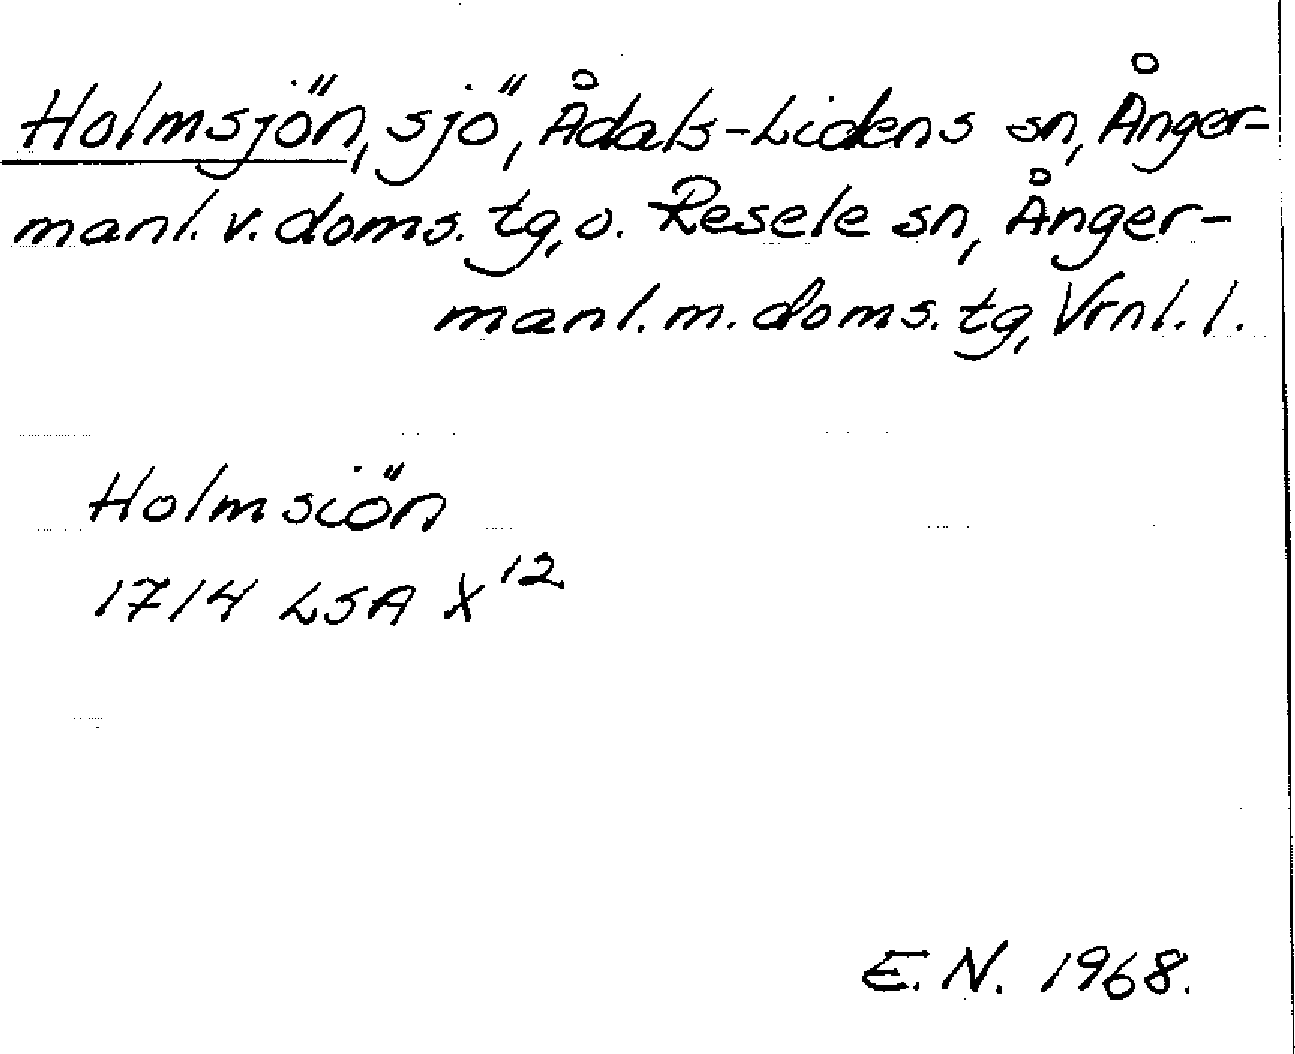 Holmsjön, sjö, Ådals-Lidens sn, Ånger-
manl. v. doms. tg, o. Resele sn, Ånger-
manl. m. doms. tg, Vrnl. l.
Holmsiön
1714 LSA X12
E.N. 1968.